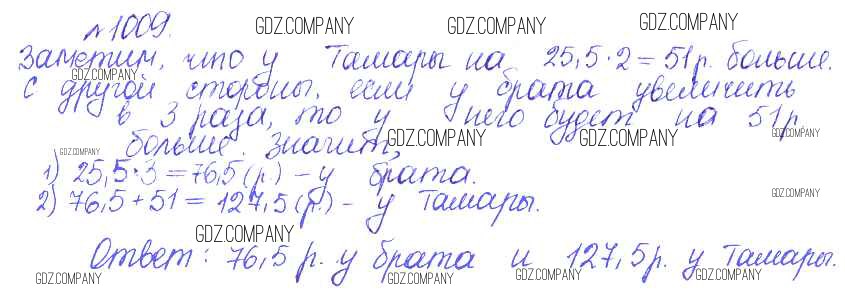 №1009. GDZ.COMPANY GDZ.COMPANY GDZ.COMPANY
Заметим, что у Тамары на 25,5·2=51р. больше.
GDZ.COMPANY
С другой стороны, если у брата увеличить
в 3 раза, то у него будет на 51р.
GDZ.COMPANY GDZ.COMPANY GDZ.COMPANY
GDZ.COMPANY больше. Значит,
1) 25,5·3=76,5(р.) – у брата.
GDZ.COMPANY
2) 76,5+51=127,5(р.) – у Тамары.
GDZ.COMPANY
GDZ.COMPANY
Ответ: 76,5 р. у брата и 127,5р. у Тамары.
GDZ.COMPANY GDZ.COMPANY GDZ.COMPANY GDZ.COMPANY